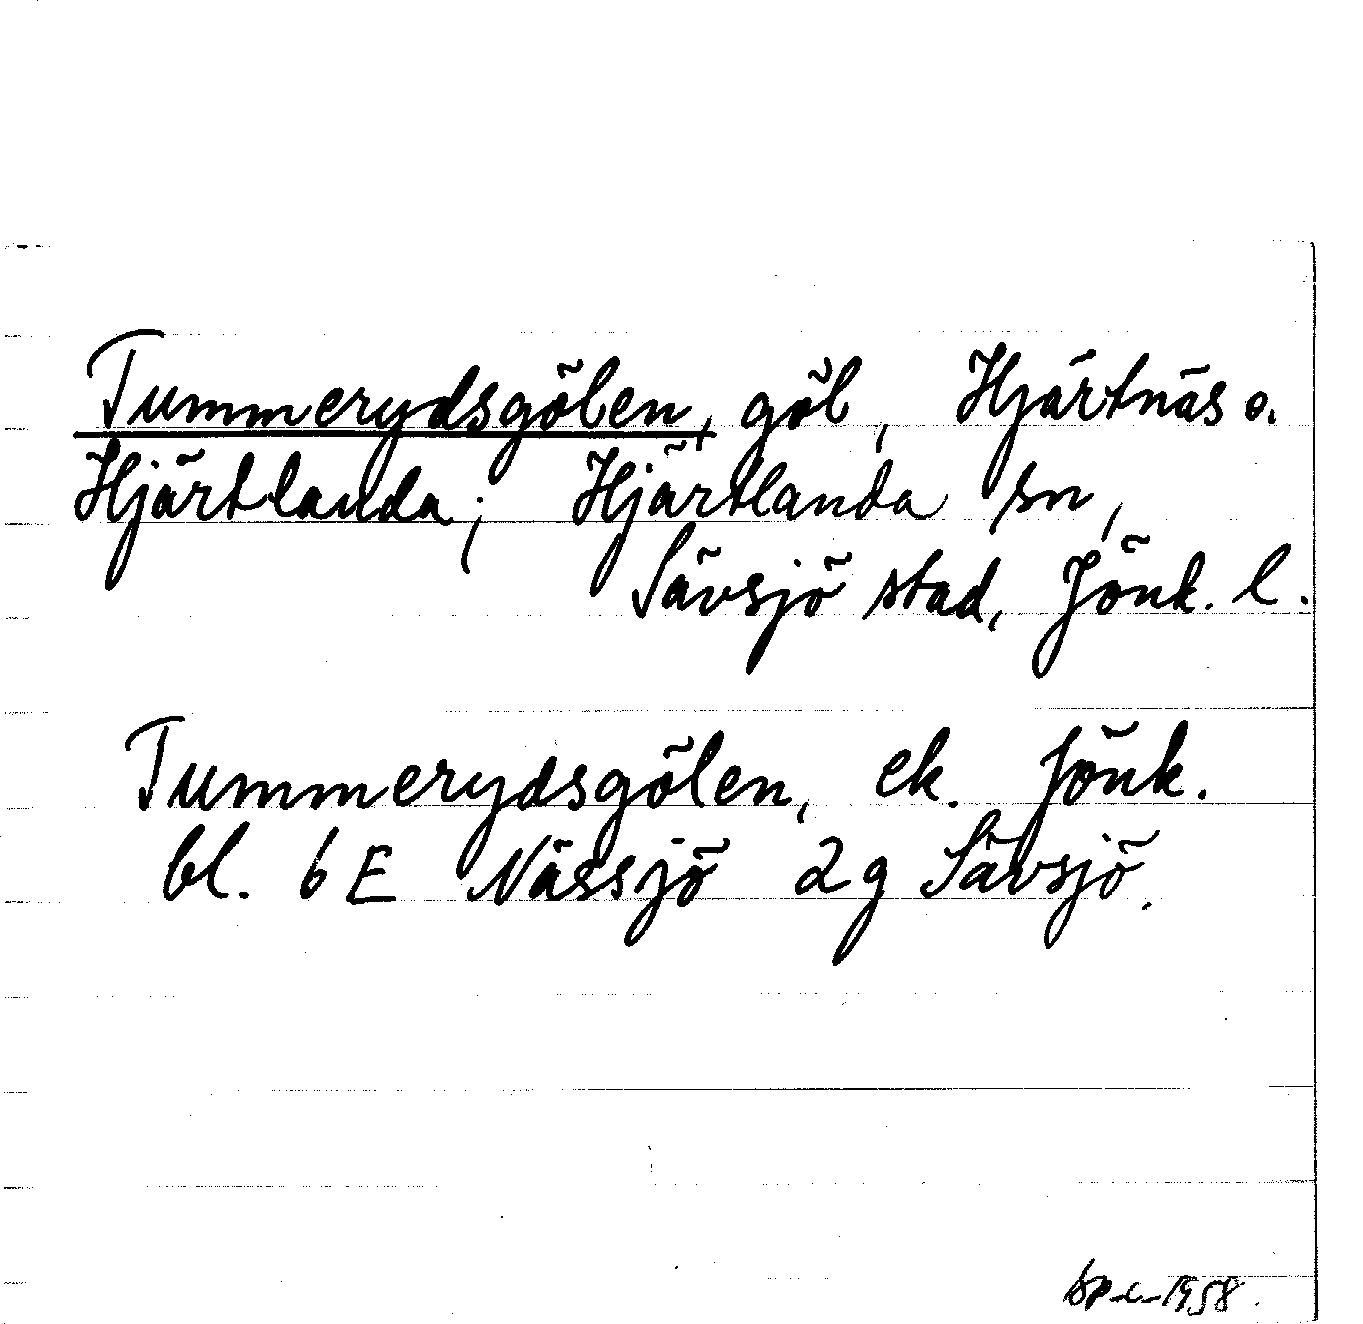 Tummerydsgölen, göl, Hjärtnäs o.
Hjärtlanda; Hjärtlanda sn,
Sävsjö stad, Jönk. l.
Tummerydsgölen, ek. Jönk.
bl. 6 E Nässjö 2g Sävsjö.
1958.